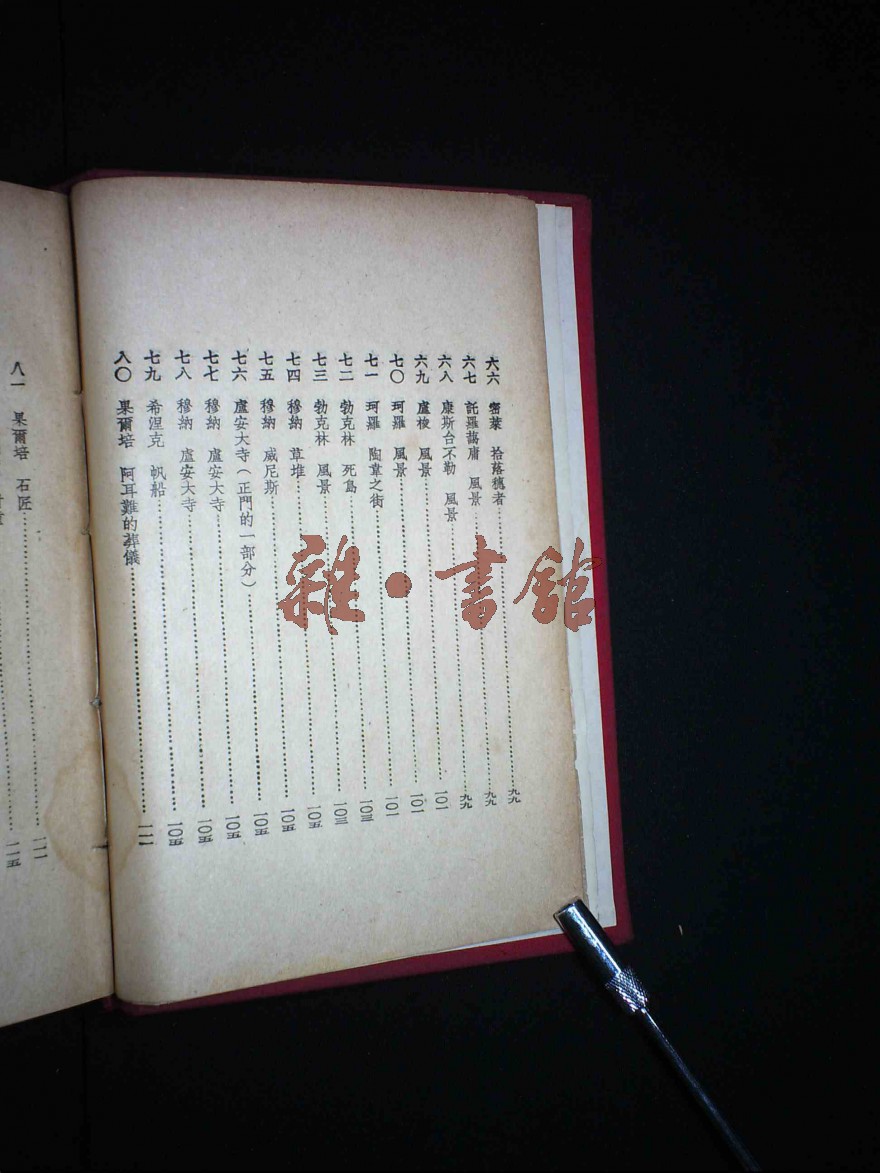 六六 密萊 拾落穗者……九九
六七 託羅藹庸 風景……九九
六八 康斯台不勒 風景……九九
六九 盧梭 風景……一〇一
七〇 珂羅 風景……一〇一
七一 珂羅 陶韋之街……一〇一
七二 勃克林 死島……一〇三
七三 勃克林 風景……一〇三
七四 穆納 草堆……一〇五
七五 穆納 威尼斯……一〇五
七六 盧安大寺（正門的一部分）……一〇五
七七 穆納 盧安大寺……一〇五
七八 穆納 盧安大寺……一〇五
七九 希涅克 帆船……一〇五
八〇 果爾培 阿耳難的葬儀……一一一
八一 果爾培 石匠……一一一
一一五
雜·書館